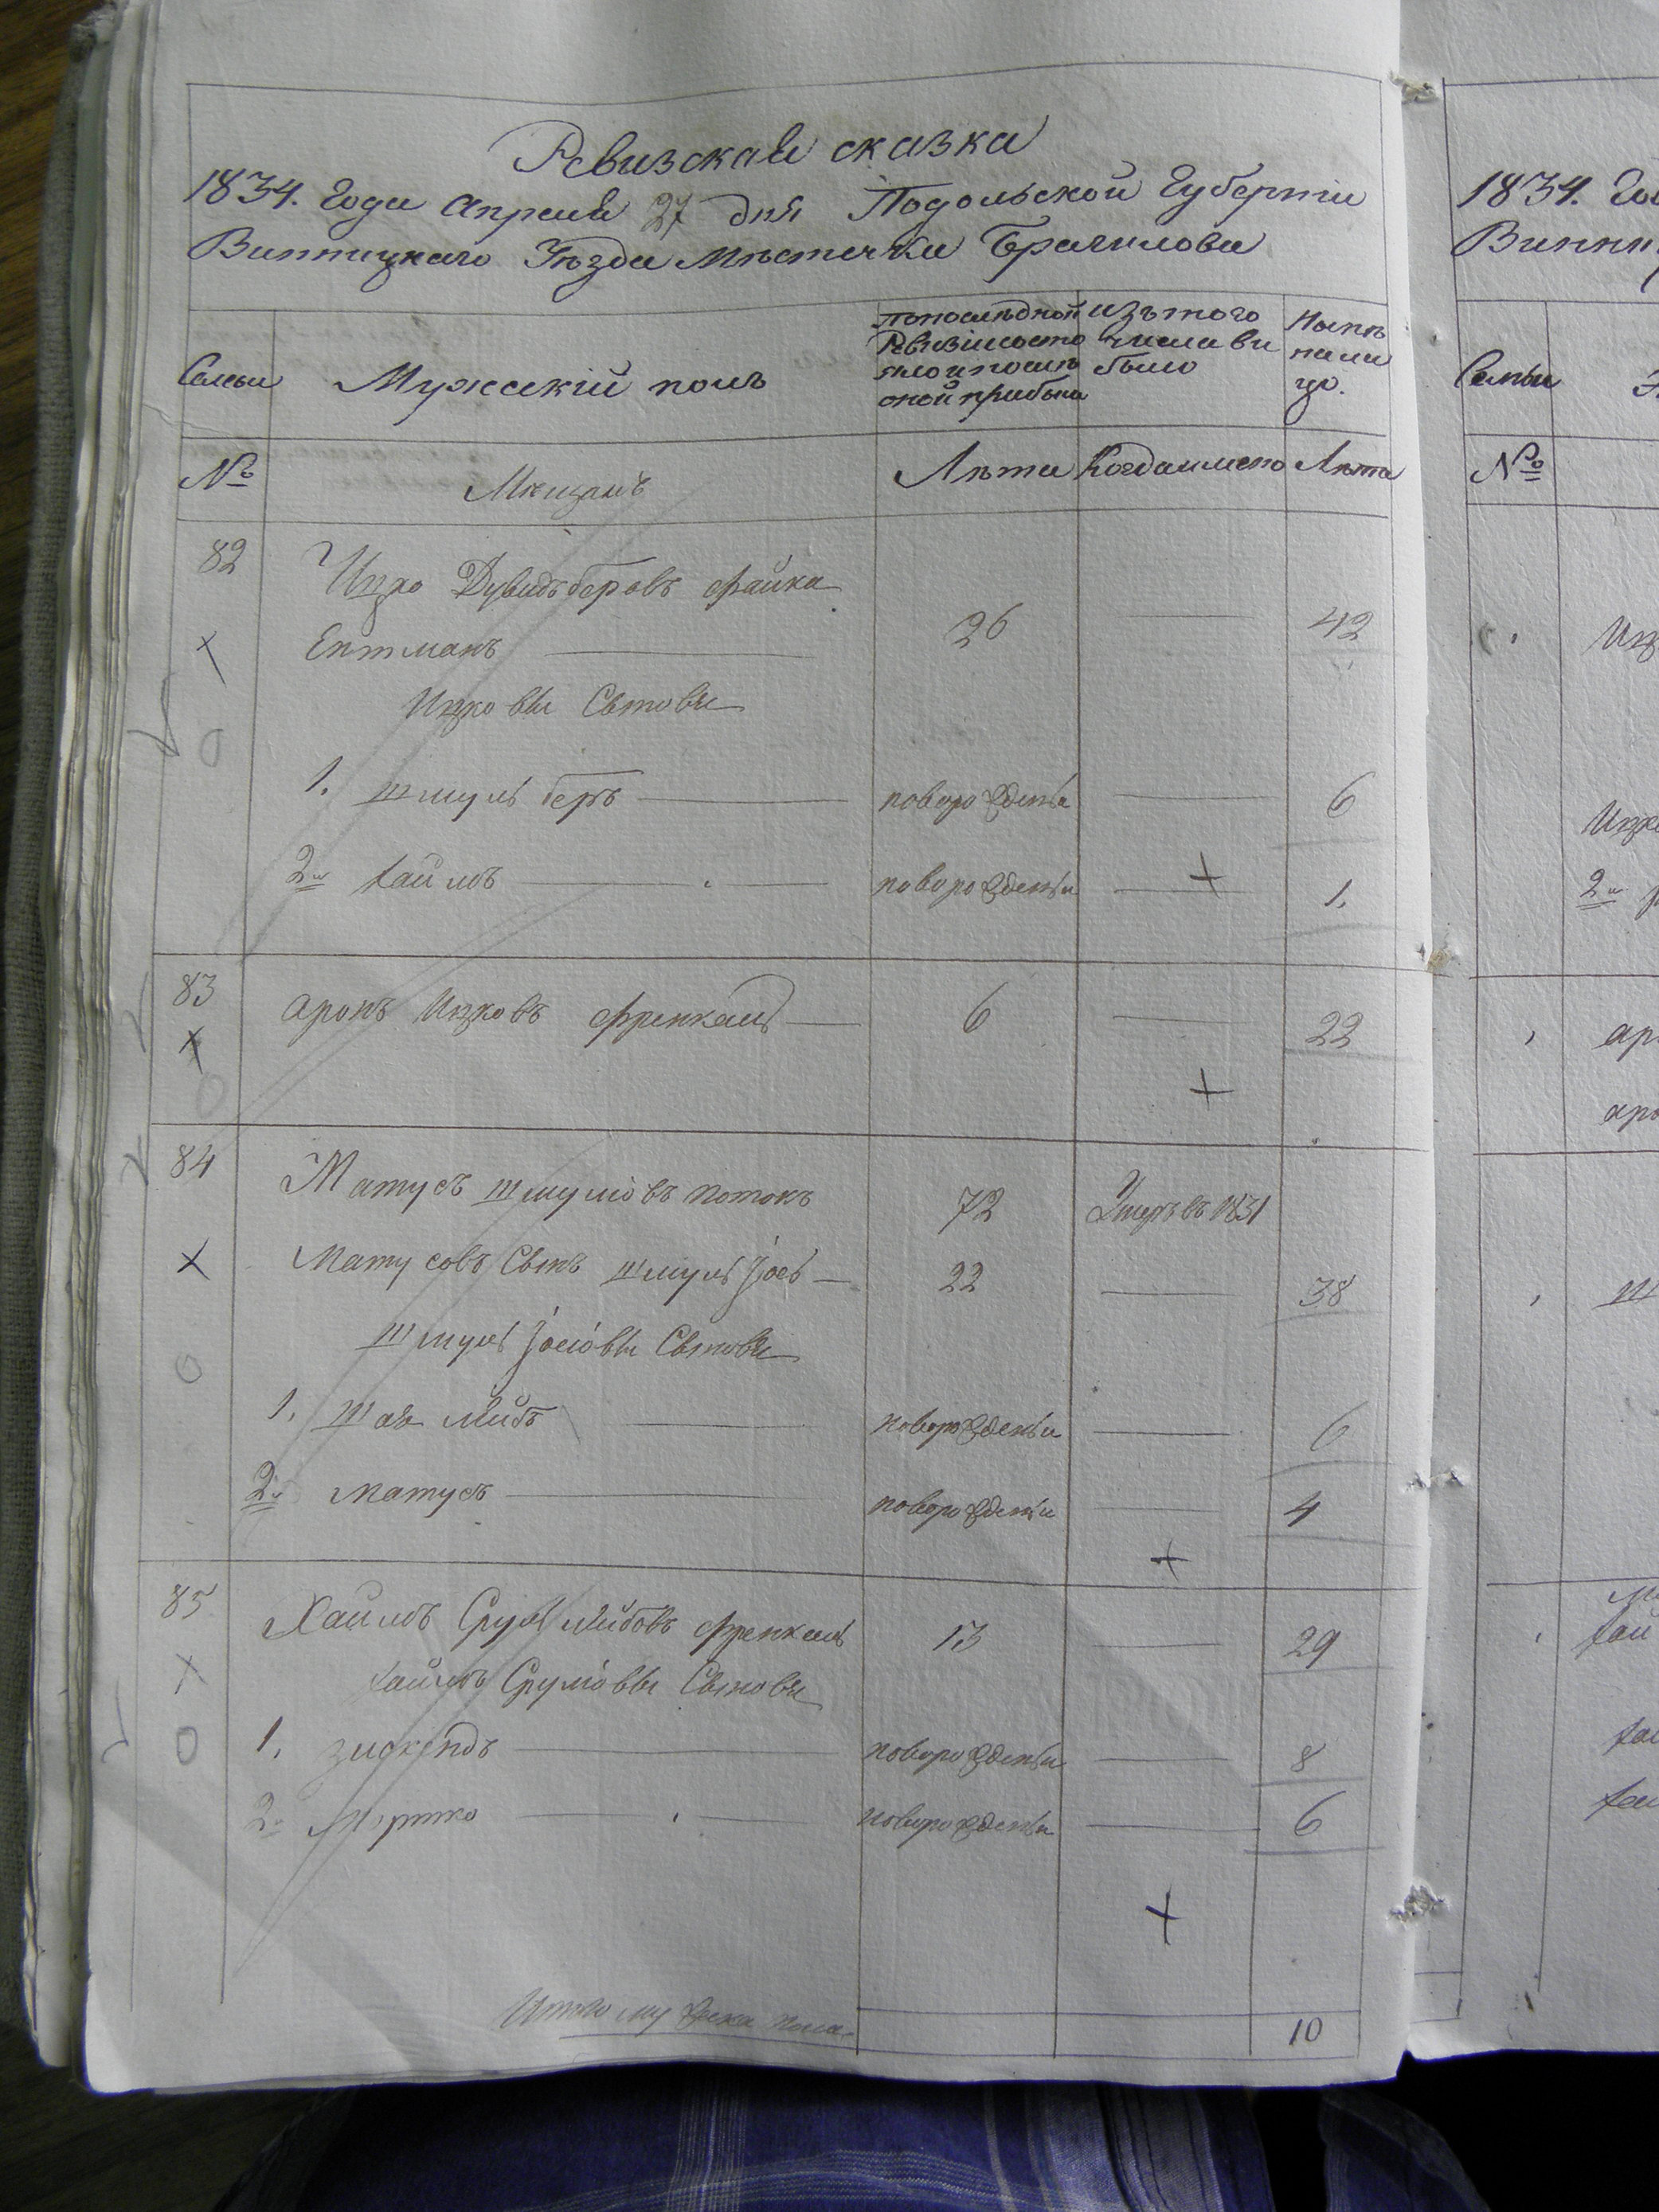 Ревизская сказка
1834. года Апреля 27 дня Подольской Губерніи
Винницкаго Уѣзда Мѣстечка Браилова
Семьи
Мужескій полъ
По последной
Ревизіи состо
яло и после
оной прибыло
Изъ того
числа вы
было
Ныне
на ли
цо.
№
Мещанъ
Лѣта
Когда именно
Лѣта
82
Ицко Дувидъ беровъ Файка
Ентманъ 26 42
Ицковы Сыновья
1. Шмуль беръ новорожденъ 6
2й хаимъ новорожденъ 1.
83 аронъ Ицковъ Френкель 6 22
84 Матусъ Шмулiовъ потокъ 72 Умеръ въ 1831
Матусовъ Сынъ Шмуль Iось 22 38
Шмуль Iосiовы Сыновья
1. Шая лейбъ новорожденъ 6
2й матусъ новорожденъ 4
85 Хаимъ Сруль лейбовъ Френкель 13 29
хаимъ Срулiовы Сыновья
1. зискендъ новорожденъ 8
2й Мортко новорожденъ 6
Итого мужеска пола 10
1834. Го
Винн
Семьи
№
Ицк
Ицко
2й
ар
аро
Ш
хаи